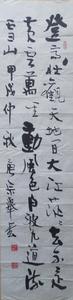 登高壯觀天地間大江茫茫去不還
黃雲萬里動風色白波九道流
雪山 甲戌仲秋 宗舉書